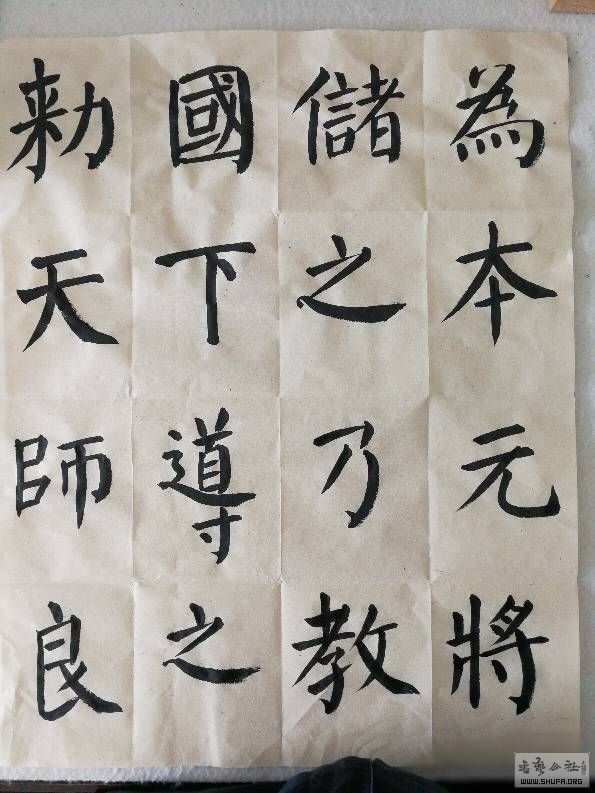 勑國儲為
天下之本
師導乃元
良之教將
书艺公社
WWW.SHUFA.ORG